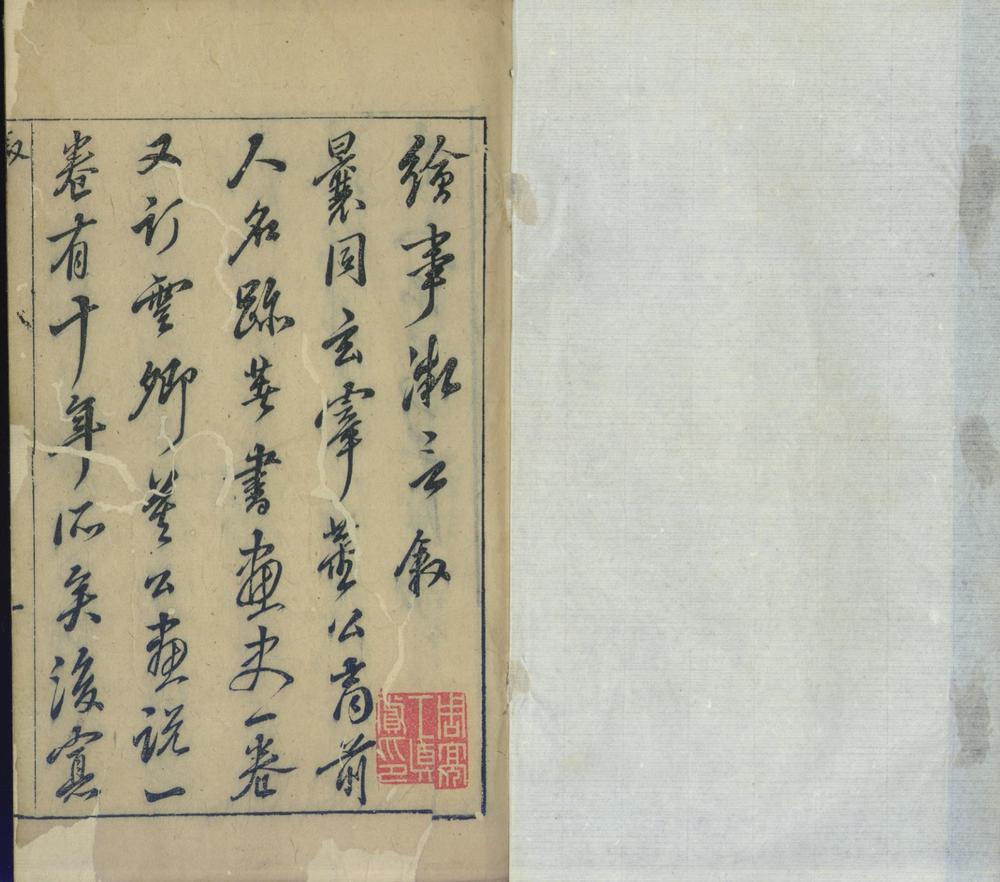 繪事微言敘
曩同玄宰董公前
人名跡書畫史一卷
又訂雲卿莫公畫說一
卷有十年所矣後